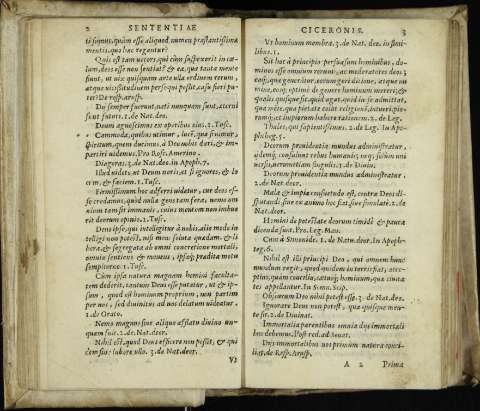 2 SENTENTIAE
ti simus, quàm esse aliquod numen præstantissimæ
mentis, quo hæc regantur?
Quis est tam vecors, qui cùm suspexerit in cæ-
lum, deos esse non sentiat? & ea, quæ tanta mente
fiunt, ut uix quisquam arte ulla ordinem rerum,
atque vicissitudinem persequi possit, casu fieri pu-
tet? De resp. arusp.
Dij semper fuerunt, nati nunquam sunt, æterni
sunt futuri. 1. de Nat. deo.
Deum agnoscimus ex operibus eius. 1. Tusc.
Commoda, quibus utimur, lucē, qua fruimur,
spiritum, quem ducimus, à Deo nobis dari, & im-
partiri uidemus. Pro Rosc. Amerino.
Diagoras. 3. de Nat. deo. in Apoph. 7.
Illud uidet, ut Deum noris, etsi ignores, & lo
cum, & faciem. 1. Tusc.
Firmissimum hoc afferri uidetur, cur deos es-
se credamus, quòd nulla gens tam fera, nemo om
nium tam sit immanis, cuius mentem non imbue
rit deorum opinio. 1. Tusc.
Deus ipse, qui intelligitur à nobis, alio modo in
telligi non potest, nisi mens soluta quædam, & li
bera, & segregata ab omni concretione mortali,
omnia sentiens & mouens, ipsaq; prædita motu
sempiterno. 1. Tusc.
Cùm ipsa natura magnam homini faculta-
tem dederit, tantum Deus esse putatur, ut & ip-
sum, quod est hominum proprium, non partum
per nos, sed diuinitus ad nos delatum uideatur.
1. de Orato.
Nemo magnus sine aliquo afflatu diuino un-
quam fuit. 2. de Nat. deor.
Nihil est, quod Deus efficere non possit, & qui
dem sine labore ullo. 3. de Nat. deor.
Vt
CICERONIS. 3
Vt hominum membra. 3. de Nat. deo. in simi-
libus. 1.
Sit hoc à principio persuasum hominibus, do-
minos esse omnium rerum, ac moderatores deos:
eaq;, quæ generētur, eorum geri ditione, atque nu
mine, eosq; optimè de genere hominum mereri; &
qualis quisque sit, quid agat, quid in se admittat,
qua mēte, qua pietate colat religionē, intueri; pio-
rumq; et impiorum habere rationem. 2. de Leg.
Thales, qui sapientissimus. 2. de Leg. In Apo-
phtheg. 5.
Deorum prouidentia mundus administratur,
ijdemq; consulunt rebus humanis, neq; solùm uni
uersis, uerumetiam singulis. 2. de Diuin.
Deorum prouidentia mundus administratur.
2. de Nat. deor.
Mala & impia consuetudo est, contra Deos di-
sputandi, siue ex animo hoc fiat, siue simulatè. 2. de
Nat. deor.
Homini de potestate deorum timidè & pauca
dicenda sunt. Pro Leg. Man.
Cum à Simonide. 1. de Natu. deor. In Apoph-
teg. 6.
Nihil est illi principi Deo, qui omnem hunc
mundum regit, quod quidem in terris fiat, acce-
ptius, quàm concilia, cœtusq; hominum, quæ ciuita
tes appellantur. In Somn. Scip.
Obscurum Deo nihil potest esse. 3. de Nat. deo.
Ignorare Deus non potest, qua quisque men-
te sit. 2. de Diuinat.
Immortalia parentibus omnia dijs immortali
bus debemus. Post red. ad Senat.
Dijs immortalibus nos primùm natura conci-
liat. de Resp. Arusp.
A 2 Prima